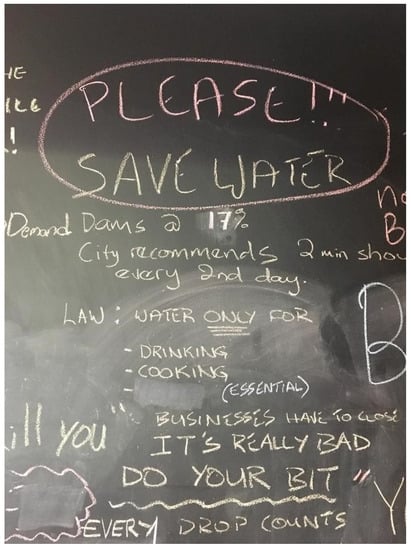 HE
!
PLEASE!!!
SAVE WATER
Demand Dams @ 17%
City recommends 2 min show
every 2nd day.
LAW: WATER ONLY FOR
- DRINKING
- COOKING
-
(ESSENTIAL)
BUSINESSES HAVE TO CLOSE
ill you"
IT'S REALLY BAD
DO YOUR BIT"
EVERY DROP COUNTS